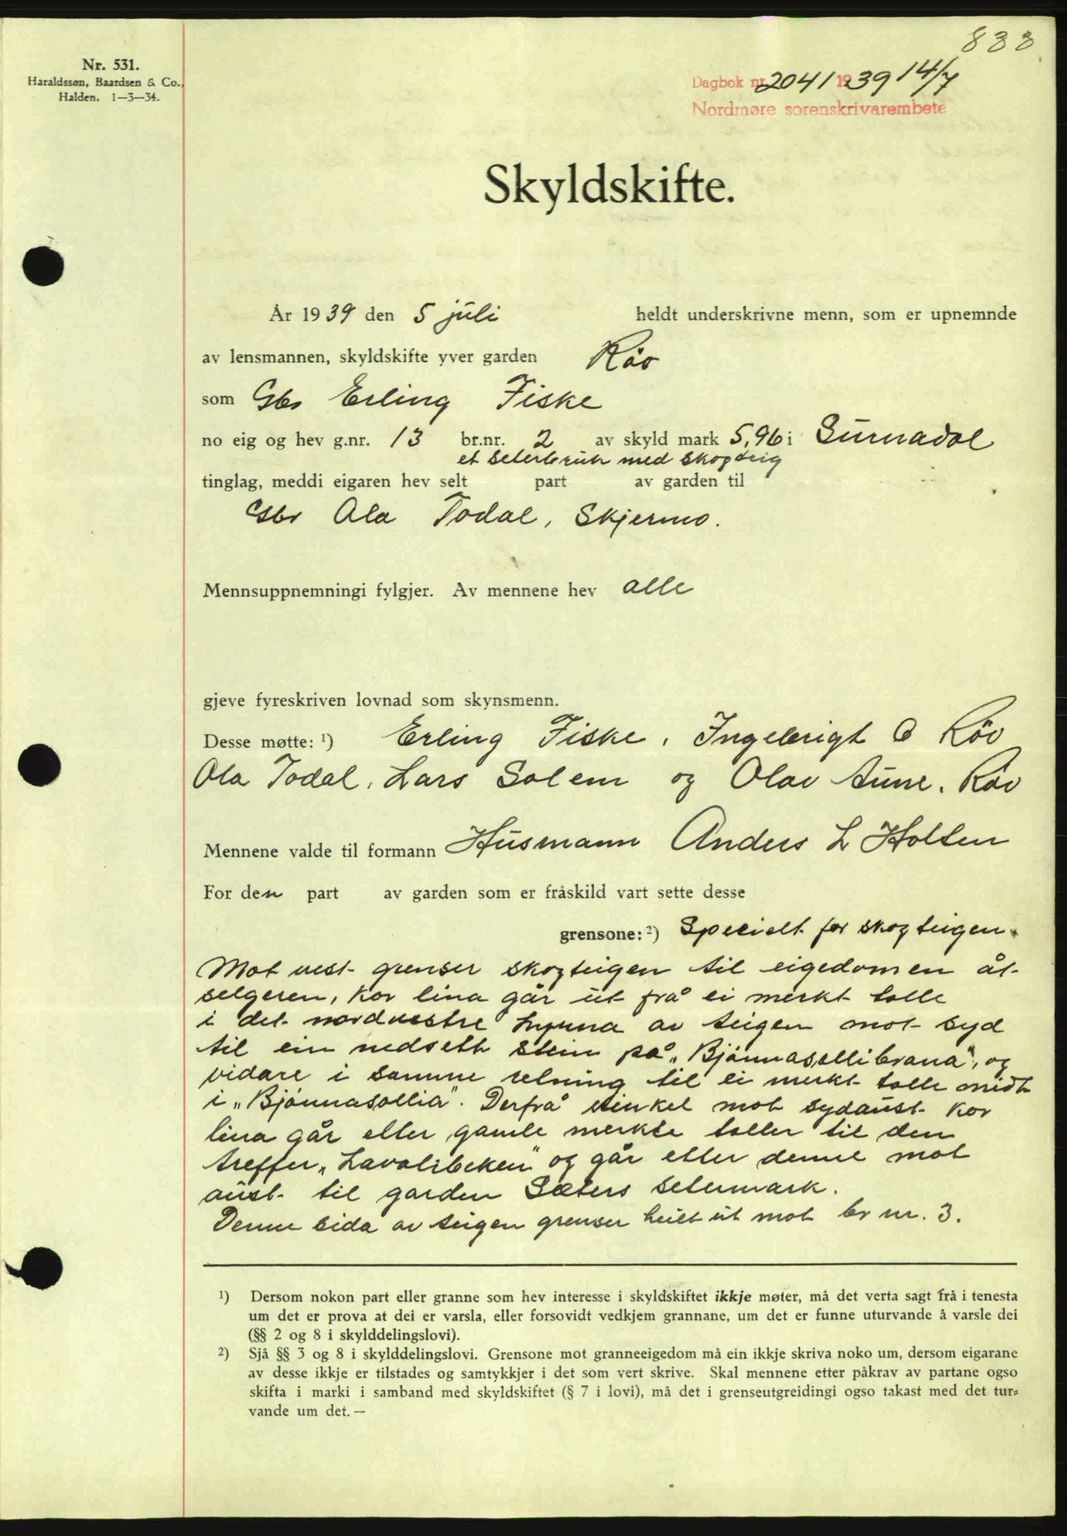 833
Nr. 531.
Haraldssøn, Baardsen & Co.,
Halden. 1—3—34.
Dagbok nr. 2041 1939 14/7
Nordmøre sorenskrivarembete
Skyldskifte.
År 1939 den 5 juli heldt underskrivne menn, som er upnemnde
av lensmannen, skyldskifte yver garden Røv
som Gbr Erling Fiske
no eig og hev g.nr. 13 br.nr. 2 av skyld mark 5,96 i Surnadal
et seterbruk med skogteig
tinglag, meddi eigaren hev selt part av garden til
Gbr Ola Todal, Skjermo.
Mennsuppnemningi fylgjer. Av mennene hev alle
gjeve fyreskriven lovnad som skynsmenn.
Desse møtte: ¹) Erling Fiske, Ingebrigt O Røv
Ola Todal, Lars Solem og Olav Aune, Røv
Mennene valde til formann Husmann Anders L Holten
For den part av garden som er fråskild vart sette desse
grensone: ²) Specielt for skogteigen.
Mot vest grenser skogteigen til eigedomen åt
selgeren, kor lina går ut frå ei merkt tolle
i det nordvestre hyrna av teigen mot syd
til ein nedsett stein på „Bjønnasollibrana", og
vidare i samme retning til ei merkt tolle midt
i „Bjønnasollia". Derfrå vinkel mot sydaust kor
lina går etter gamle merkte toller til den
treffer „Lavolibekken" og går etter denne mot
aust til garden Sæters setermark.
Denne sida av teigen grenser heilt ut mot br nr. 3.
¹) Dersom nokon part eller granne som hev interesse i skyldskiftet ikkje møter, må det verta sagt frå i tenesta
um det er prova at dei er varsla, eller forsovidt vedkjem grannane, um det er funne uturvande å varsle dei
(§§ 2 og 8 i skylddelingslovi).
²) Sjå §§ 3 og 8 i skylddelingslovi. Grensone mot granneeigedom må ein ikkje skriva noko um, dersom eigarane
av desse ikkje er tilstades og samtykkjer i det som vert skrive. Skal mennene etter påkrav av partane ogso
skifta i marki i samband med skyldskiftet (§ 7 i lovi), må det i grenseutgreidingi ogso takast med det tur=
vande um det. —